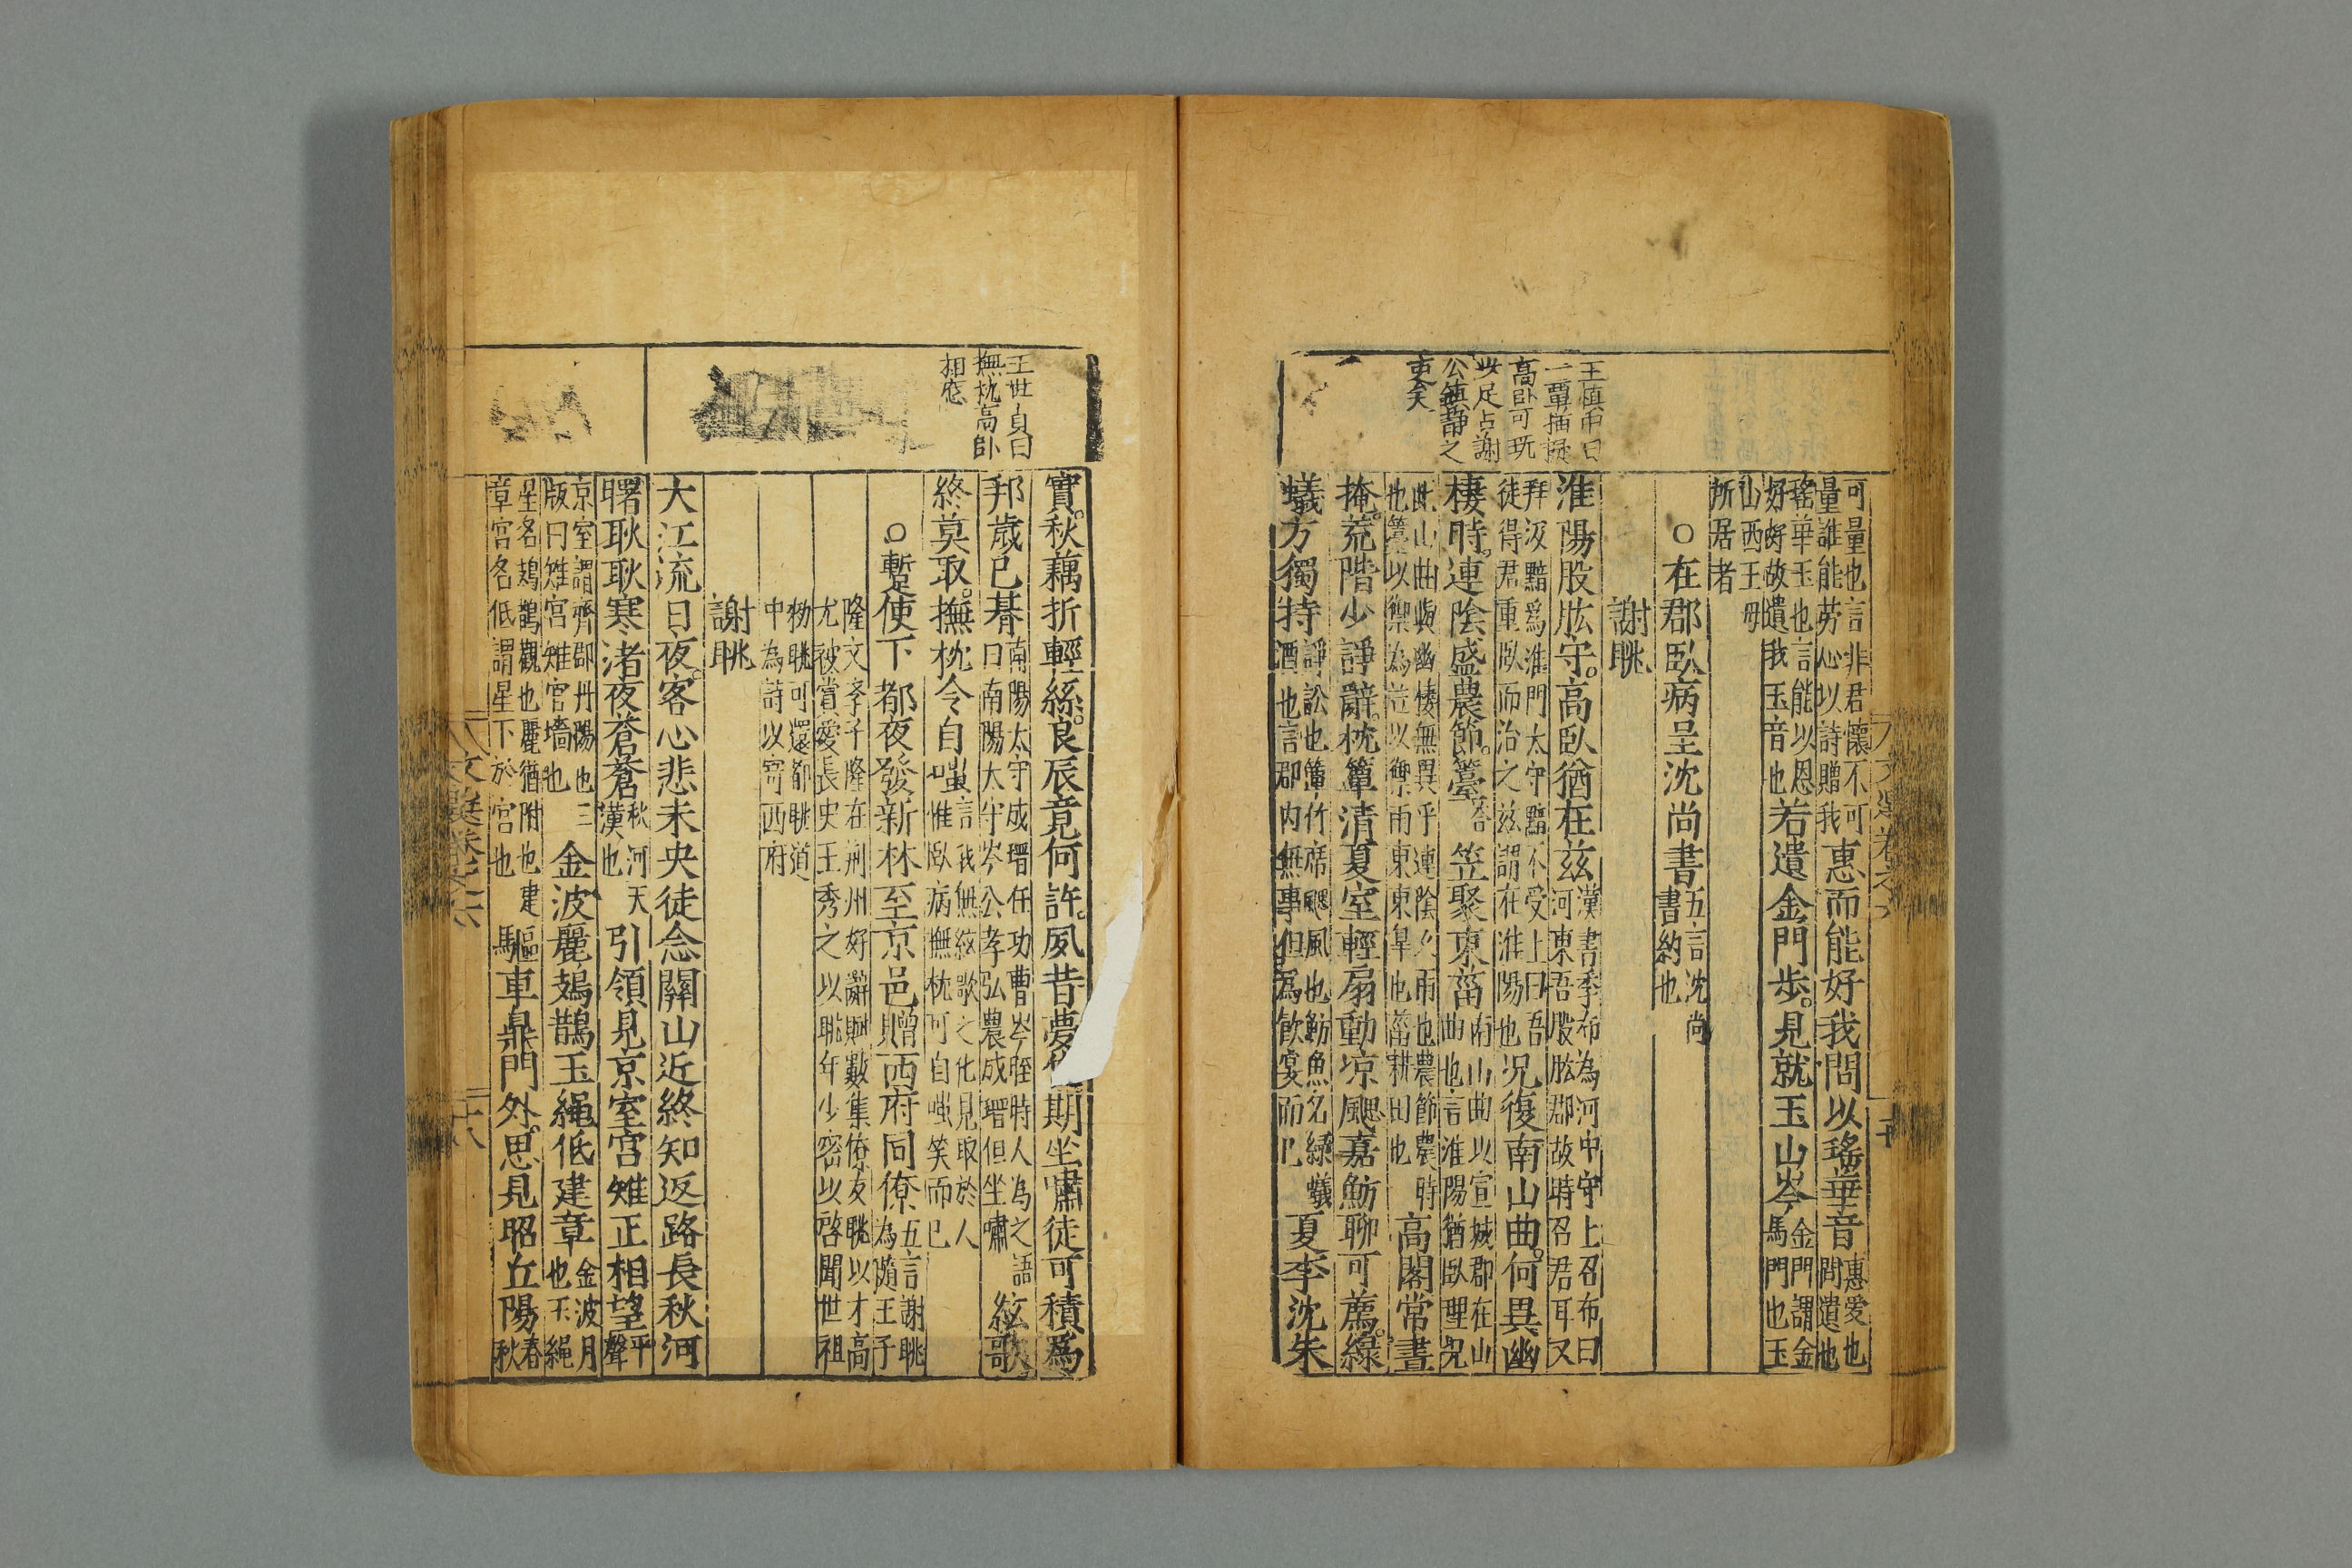 王慎中曰
一覃插掞
高卧可玩
此足占謝
公鎮静之
吏矣
可量也言非君懷不可
量誰能勞心以詩贈我
惠而能好我問以瑤華音
惠愛也
問遺也
瑤華玉也言能以恩
好好故遺我玉音也
若遺金門步。見就玉山岑
金門謂金
馬門也玉
山西王母
所居者
○在郡臥病呈沈尚書
五言沈尚
書約也
謝眺
淮陽股肱守。高臥猶在茲
漢書季布為河中守上召布曰
河東吾股肱郡故時召君耳又
拜汲黯爲淮門太守黯不受上曰吾
徒得君重臥而治之茲謂在淮陽也
况復南山曲。何異幽
棲時。連陰盛農節。䑓
苔
笠聚東菑
南山曲以宣城郡在山
曲也言淮陽猶臥理况
此山曲與幽悽無異乎連陰久雨也農節農時
也䑓以禦為笠以禦雨東東皐也菑耕田也
高閣常晝
掩。荒階少諍辭。枕簟清夏室輕扇動凉颸嘉魴聊可薦。綠
蟻方獨持
諍訟也簟竹席颸風也魴魚名綠蟻
酒也言郡内無事但爲飲宴而已
夏李沈朱
文選卷之六
王世貞曰
撫枕高卧
相應
實。秋藕折輕絲。良辰竟何許。夙昔夢
期坐嘯徒可積爲
邦歲已朞
南陽太守成瑨任功曹岑晊時人為之語
曰南陽太守岑公孝弘農成瑨但坐嘯
絃歌
終莫取。撫枕令自嗤
言我無絃歌之化見取於人
惟臥病撫枕可自嗤笑而已
○暫使下都夜發新林至京邑贈西府同僚
五言謝眺
為隨王子
隆文孝子隆在荊州好辭賦數集僚友眺以才高
尤被賞愛長史王秀之以眺年少密以啓聞世祖
勑眺可還都眺道
中為詩以寄西府
謝眺
大江流日夜。客心悲未央徒念關山近終知返路長秋河
曙耿耿寒渚夜蒼蒼
秋河天
漢也
引領見京室宮雉正相望
平
聲
京室謂齊郡丹陽也三
版曰雉宮雉宮墻也
金波麗鳷鵲玉繩低建章
金波月
也玉繩
星名鳷鵲觀也麗猶附也建
章宮名低謂星下於宮也
驅車鼎門外。思見昭丘陽
春
秋
文選卷之六
二十八